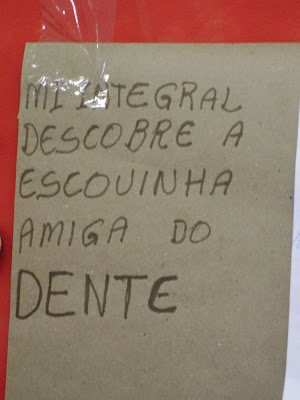 MI INTEGRAL
DESCOBRE A
ESCOUINHA
AMIGA DO
DENTE